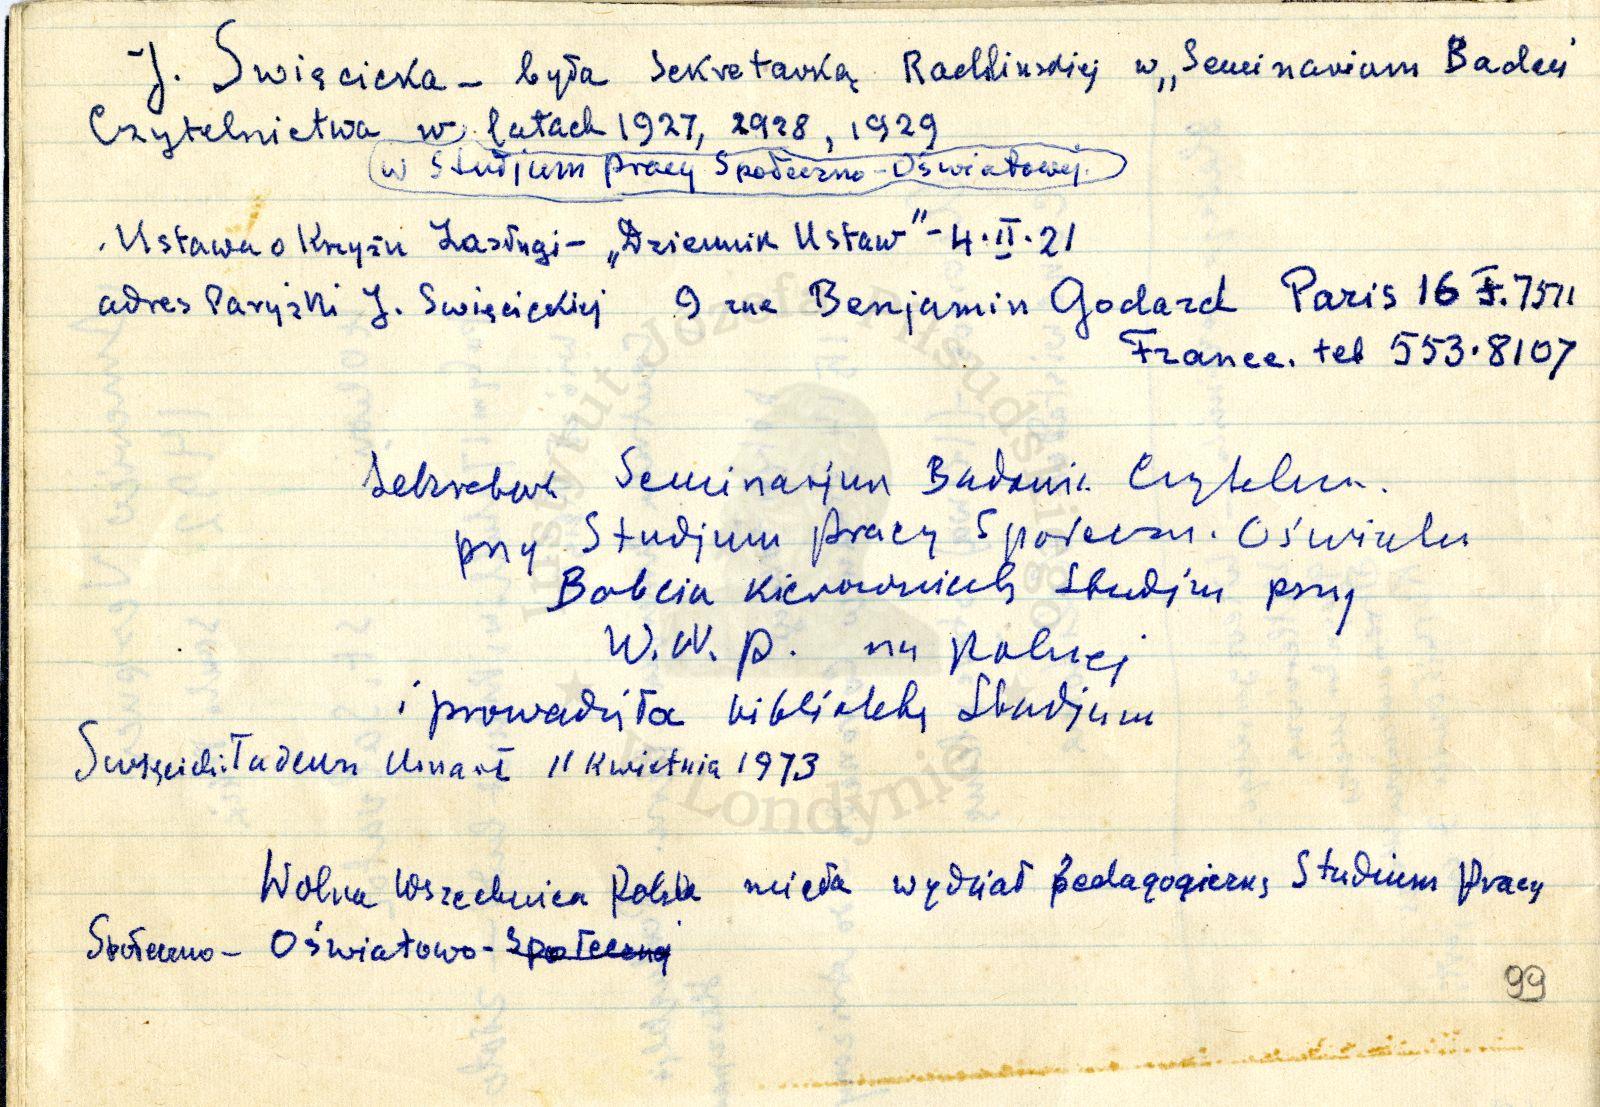 J. Swięcicka – była sekretarką Radlińskiej w „Seminarium Badań
Czytelnictwa w latach 1927, 2928, 1929
w Studjum pracy Społeczno-Oświatowej.
Ustawa o Krzyżu Zasługi – „Dziennik Ustaw" – 4.II.21
adres Paryski J. Swięcickiej 9 rue Benjamin Godard Paris 16 F. 7511
France. tel 553.8107
Seminarjum Badania Czyteln.
przy Studjum pracy Społeczn. Oświatu
Babcia Studjum przy
W.W.P. na
i prowadziła bibliotekę Studjum
Święcicki Tadeusz Umarł 11 kwietnia 1973
Wolna Wszechnica Polska miała wydział pedagogiczny Studium Pracy
Społeczno – Oświatowo - Społecznej
99
Instytut Józefa Piłsudskiego
Londynie